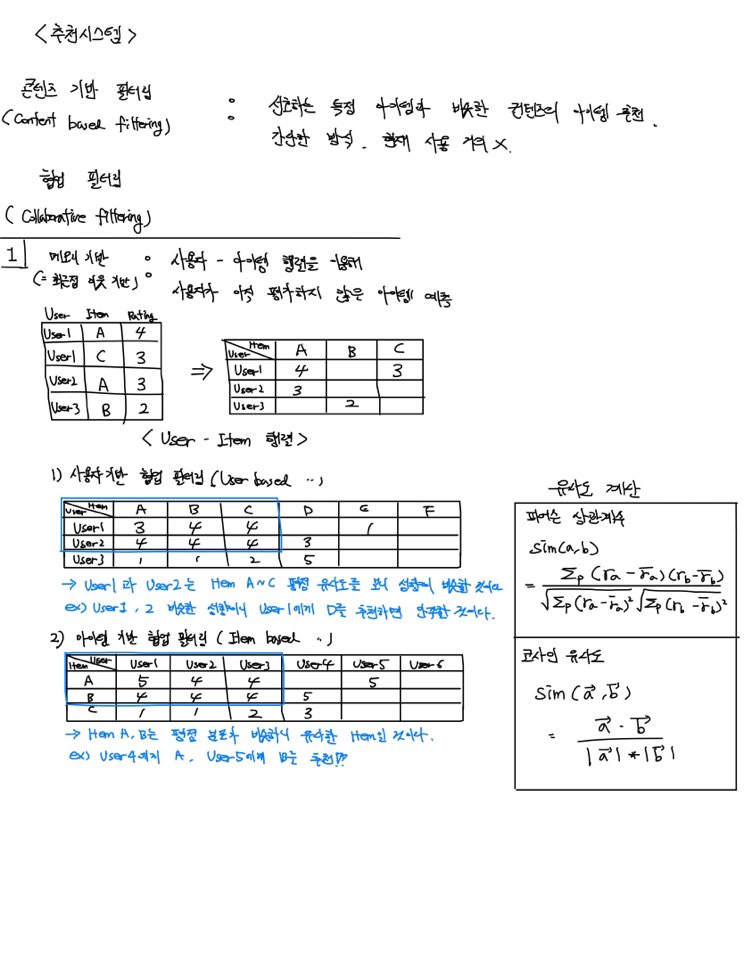 <추천시스템>
콘텐츠 기반 필터링 : 선호하는 특정 아이템과 비슷한 컨텐츠의 아이템 추천.
(Content based filtering) 간단한 방식. 현재 사용 거의 X.
협업 필터링
(Collaborative filtering)
1 메모리 기반 : 사용자 - 아이템 행렬을 이용해
(= 최근접 이웃 기반) 사용자가 아직 평가하지 않은 아이템 예측
User Item Rating
User1 A 4
User1 C 3
User2 A 3
User3 B 2
⇒
User Item A B C
User1 4 3
User2 3
User3 2
<User - Item 행렬>
1) 사용자 기반 협업 필터링 (User based ..)
User Item A B C D E F
User1 3 4 4 1
User2 4 4 4 3
User3 1 1 2 5
→ User1 과 User2는 Item A~C 평점 유사도를 보니 성향이 비슷한 것이다
ex) User1, 2 비슷한 성향이니 User1에게 D를 추천하면 만족할 것이다.
2) 아이템 기반 협업 필터링 (Item based ..)
Item User User1 User2 User3 User4 User5 User6
A 5 4 4 5
B 4 4 4 5
C 1 1 2 3
→ Item A, B는 평점 분포가 비슷하니 유사한 Item인 것이다.
ex) User4에게 A, User5에게 B는 추천!!
유사도 계산
피어슨 상관계수
sim(a,b)
= Σp (ra - r̄a)(rb - r̄b) / √Σp (ra - r̄a)² √Σp (rb - r̄b)²
코사인 유사도
sim (a⃗, b⃗)
= a⃗ · b⃗ / |a⃗| * |b⃗|